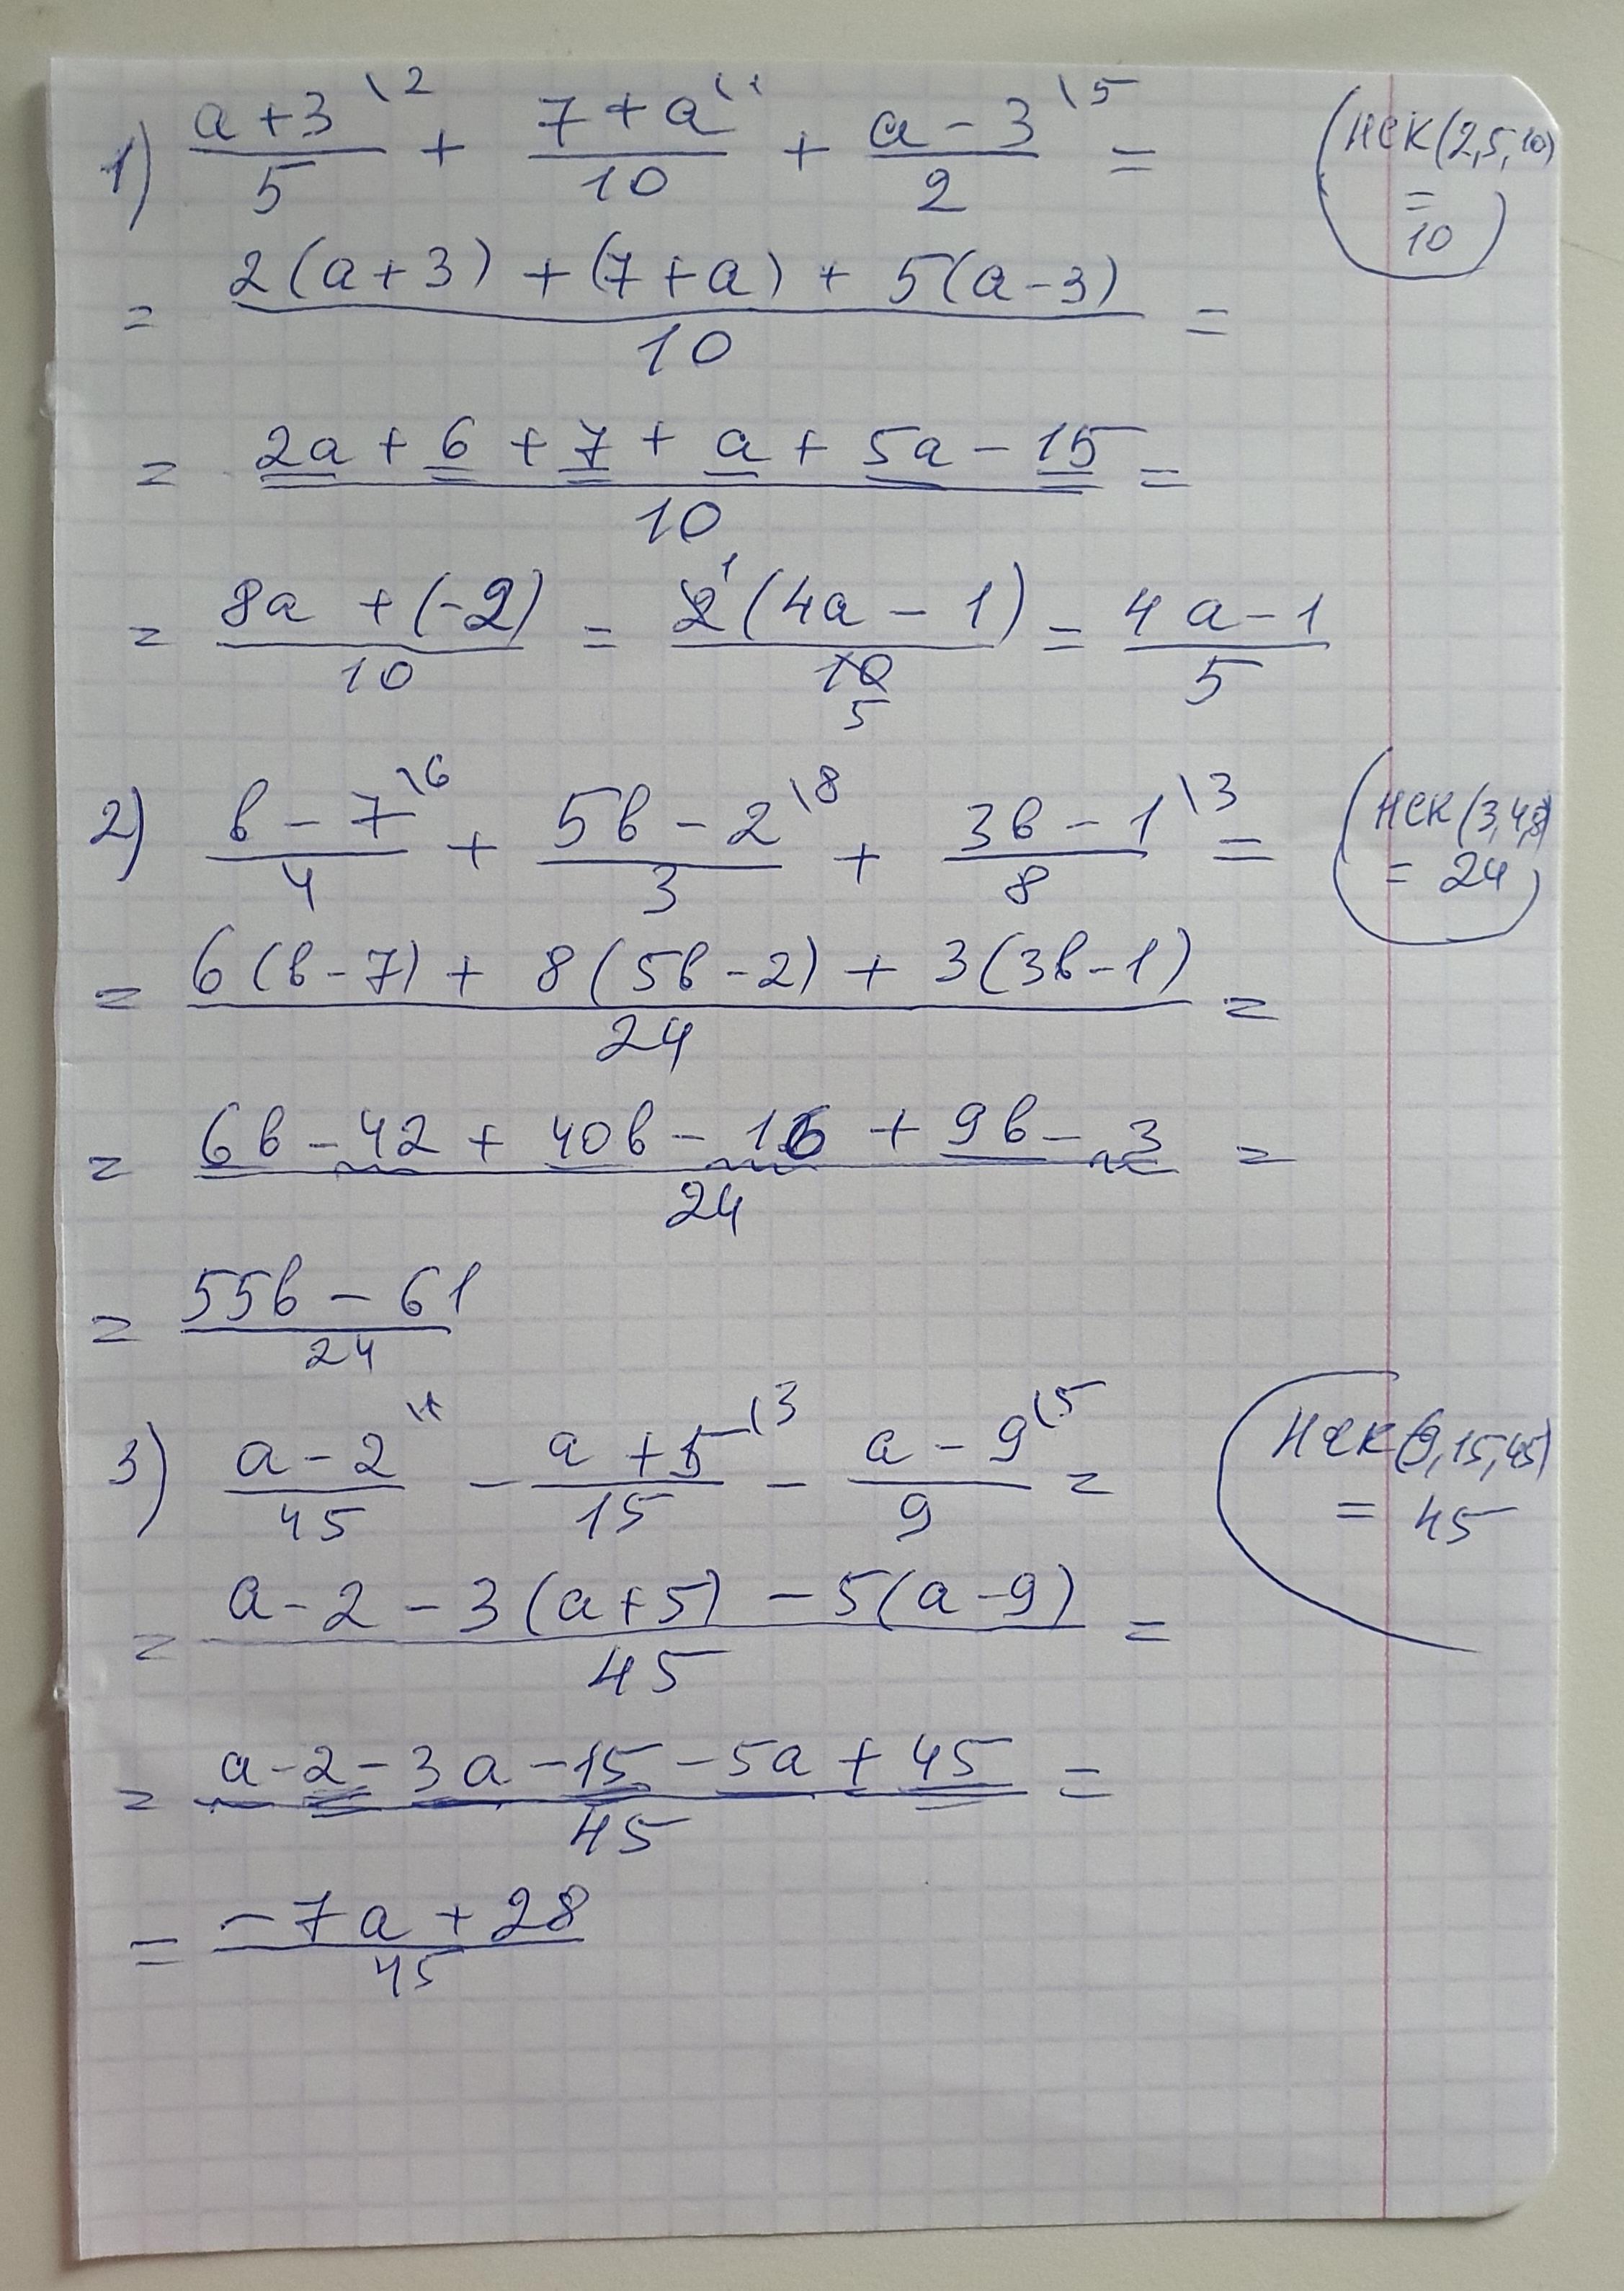 1) (a+3)/5 \2 + (7+a)/10 \1 + (a-3)/2 \5 =
(НСК(2,5,10) = 10)
= (2(a+3) + (7+a) + 5(a-3))/10 =
= (2a + 6 + 7 + a + 5a - 15)/10 =
= (8a + (-2))/10 = (2 1 (4a - 1))/(10 5) = (4a-1)/5
2) (в-7)/4 \6 + (5в-2)/3 \8 + (3в-1)/8 \3 =
(НСК(3,4,8) = 24)
= (6(в-7) + 8(5в-2) + 3(3в-1))/24 =
= (6в - 42 + 40в - 16 + 9в - 3)/24 =
= (55в - 61)/24
3) (a-2)/45 \1 - (a+5)/15 \3 - (a-9)/9 \5 =
(НСК(9,15,45) = 45
= (a-2-3(a+5)-5(a-9))/45 =
= (a-2-3a-15-5a+45)/45 =
= (-7a+28)/45